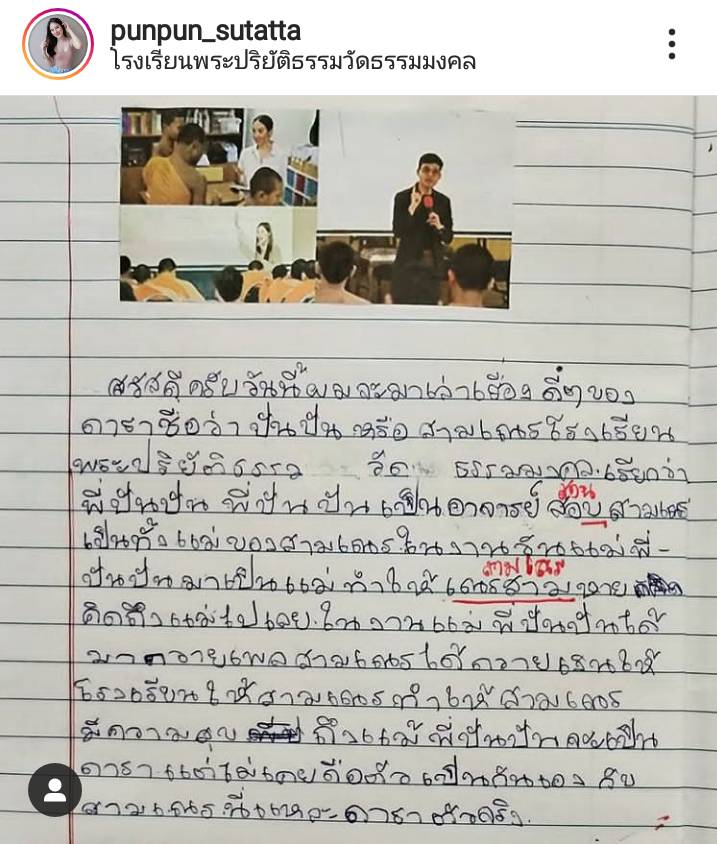 punpun_sutatta
โรงเรียนพระปริยัติธรรมวัดธรรมมงคล
สวัสดีครับวันนี้ผมจะมาเล่าเรื่อง ดีๆของ
ดาราชื่อว่า ปันปัน หรือ สามเณรโรงเรียน
พระปริยัติธรรม วัด ธรรมมงคล.เรียกว่า
พี่ปันปัน พี่ปัน ปัน เป็น อาจารย์ สอบ สามเณร
สอน
เป็นทั้งแม่ของสามเณร.ในงานวันแม่พี่-
ปันปัน มาเป็นแม่ ทำให้ เณรสาม หาย
สามเณร
คิดถึงแม่ไปเลย.ในงานแม่ พี่ปันปันได้
มาถวายเพลสามเณรได้ถวายเซนให้
โรงเรียนให้สามเณรทำให้สามเณร
มีความสุข ถึงแม้พี่ปันปันจะเป็น
ดาราแต่ไม่เคยถือตัว เป็นกันเอง กับ
สามเณร.นี่แหละดาราตัวจริง.